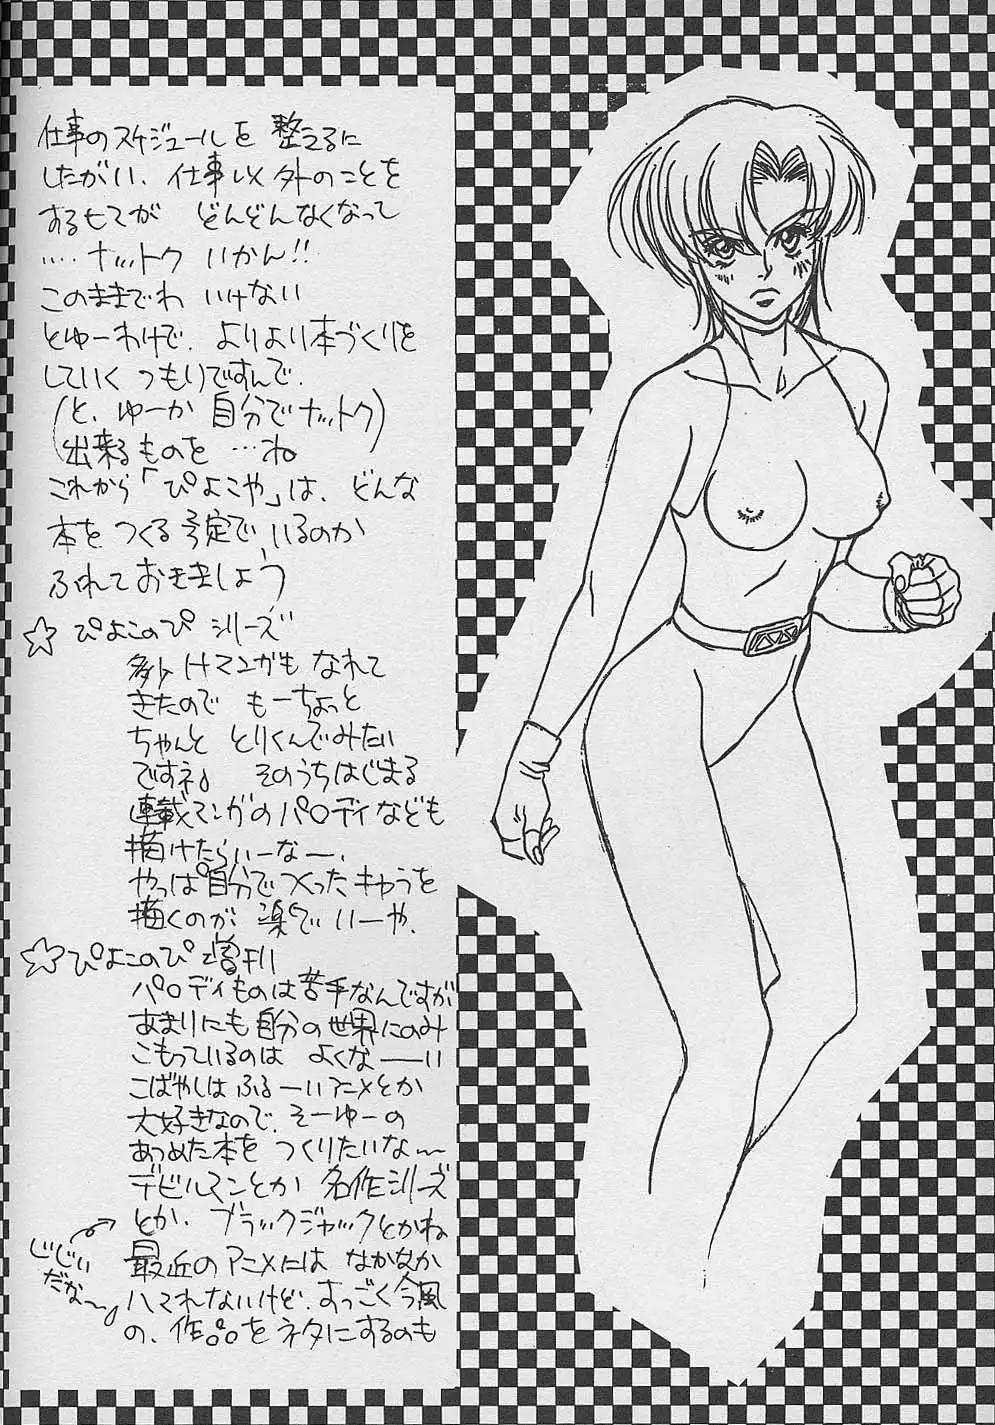 仕事のスケジュールを 整えるに
したがい、仕事以外のことを
するもてが どんどんなくなって
‥‥ナットク いかん!!
このままでわ いけない
とゆーわけで、よりより本づくりを
していく つもりですんで、
(と、ゆーか 自分でナットク)
(出来るものを …ね
これから「ぴよこや」は、どんな
本を つくる予定でいるのか
ふれておきましょう
☆ ぴよこのぴ シリーズ
多少はマンガも なれて
きたので もーちょっと
ちゃんと とりくんでみたい
ですネ。 そのうちはじまる
連載マンガのパロディなども
描けたらいーなー、
やっぱ自分でつくったキャラを
描くのが 楽でいーや、
☆ぴよこのぴ 増刊
パロディものは苦手なんですが
あまりにも自分の世界にのみ
こもっているのは よくなーーい
こばやしはふるーいアニメとか
大好きなので、そーゆーの
あつめた本を つくりたいな〜
デビルマンとか 名作シリーズ
とか、ブラックジャックとかね
じじい
だな〜
最近のアニメには なかなか
ハマれないけど、すっごく今風
の、作品をネタにするのも